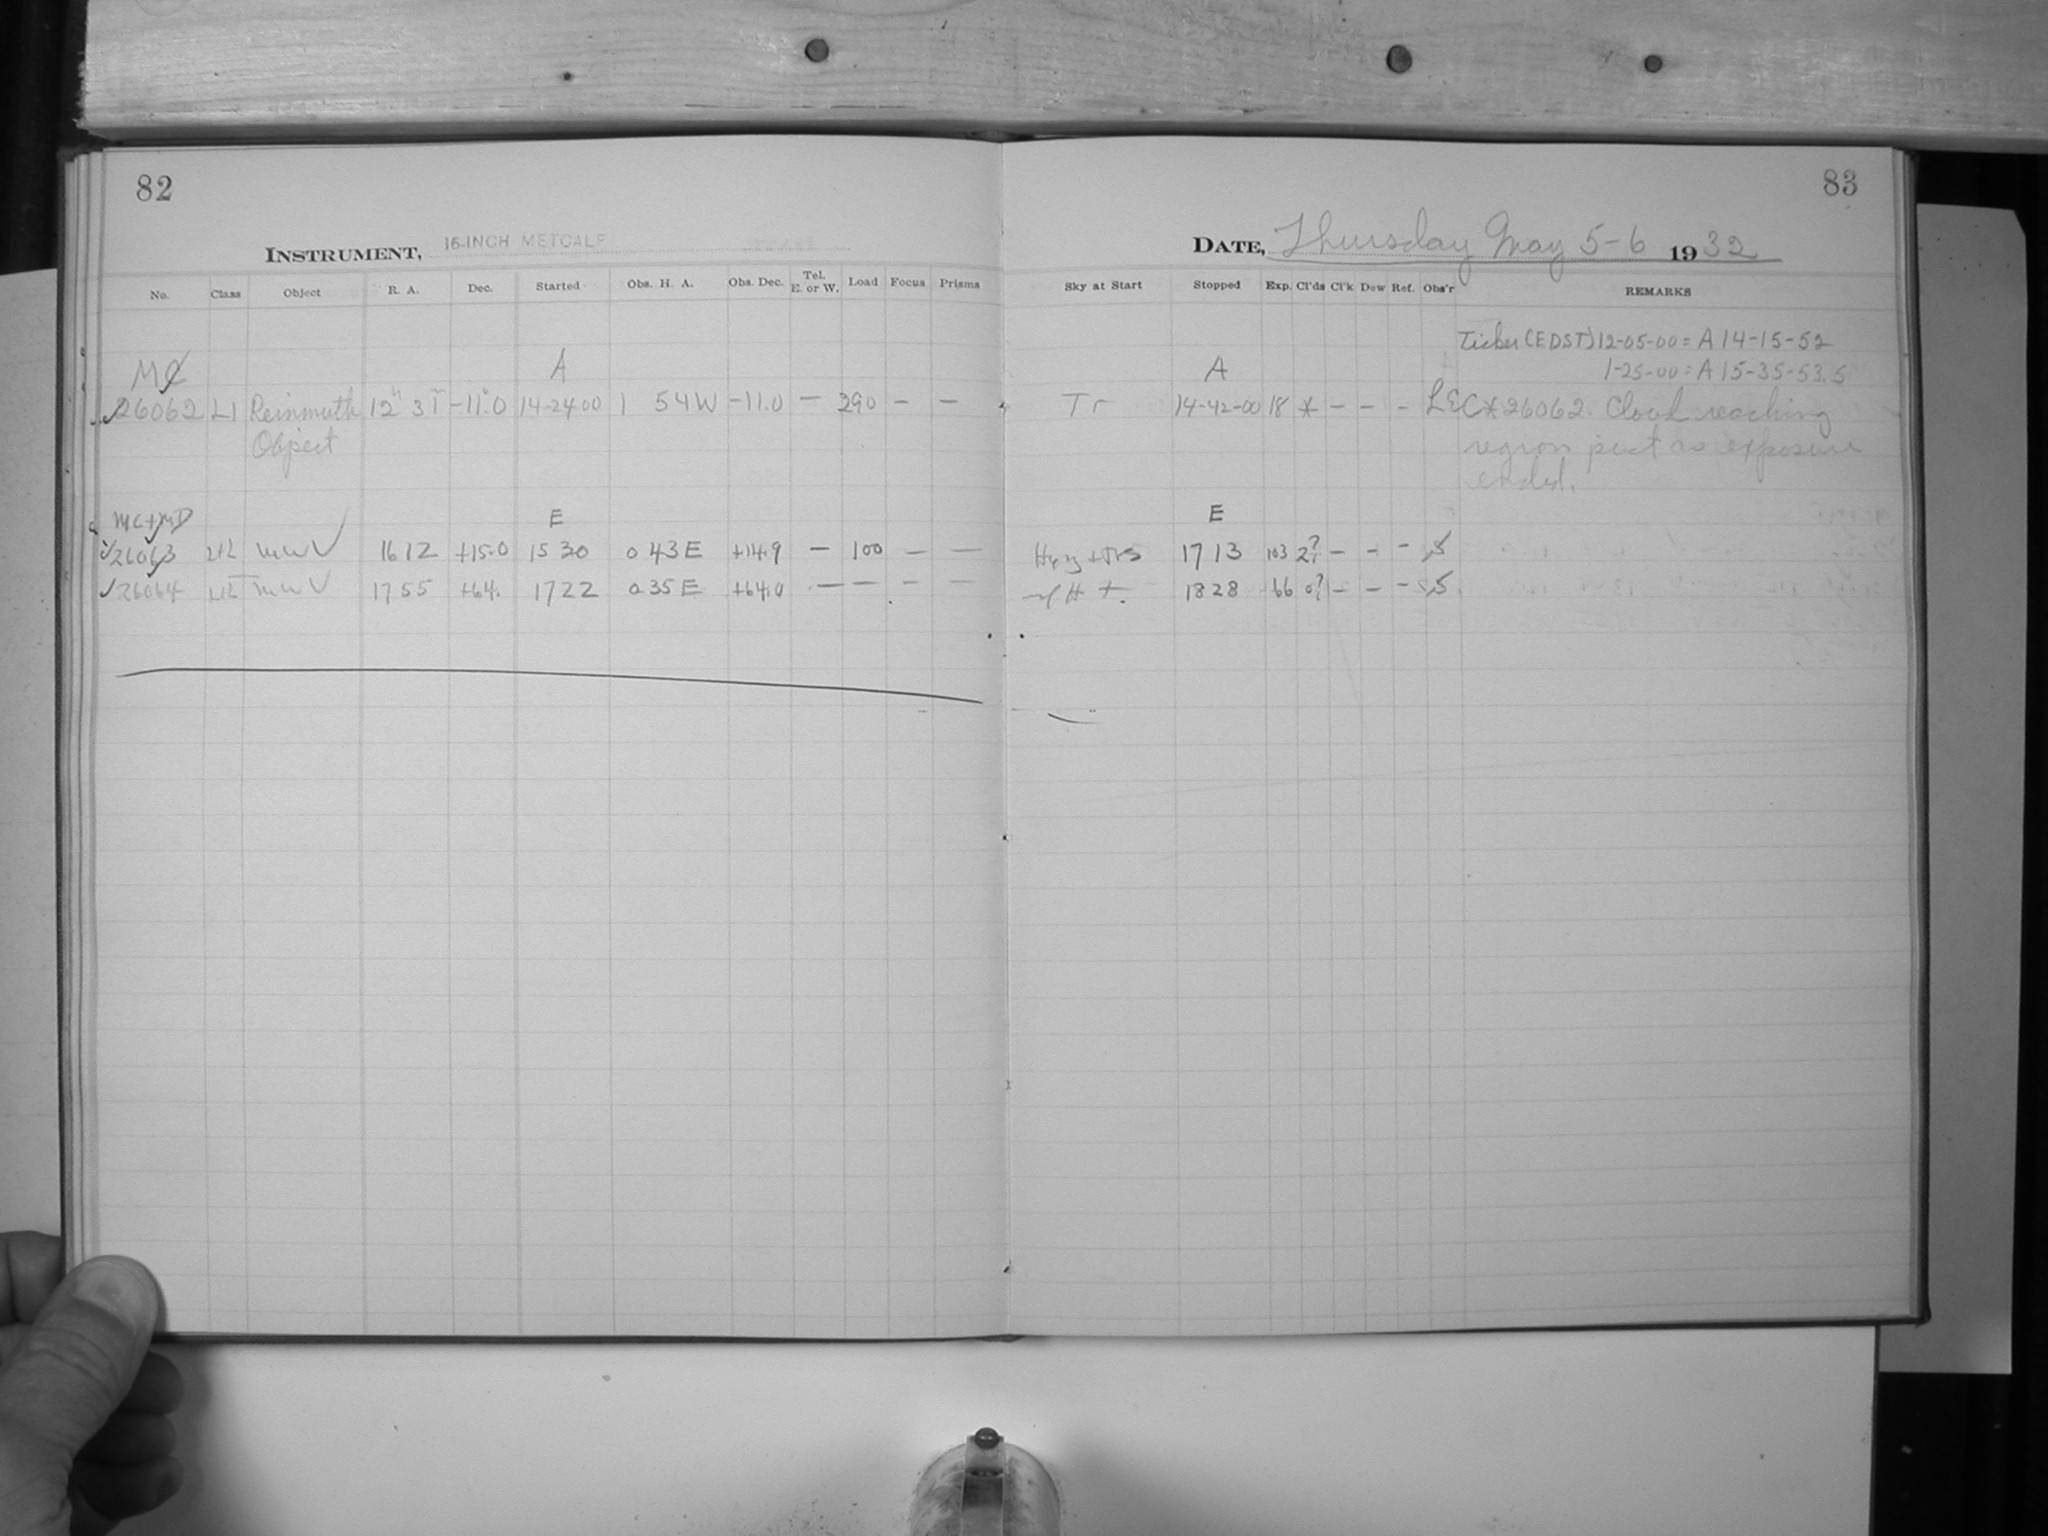 82
INSTRUMENT, 16-INCH METCALF
No. Class Object R. A. Dec. Started Obs. H. A. Obs. Dec. Tel. E. or W. Load Focus Prisms
MC A
26062 L1 Reinmuth 12h 31m -11°.0 14-24-00 1 54W -11.0 — 290 — —
Object
MC+MD E
26063 L12 MWV 16 12 +15.0 15 30 0 43 E +14.9 — 100 — —
26064 L12 MWV 17 55 +64. 17 22 0 35 E +64.0 — — — —
83
DATE, Thursday May 5-6 1932
Sky at Start Stopped Exp. Cl'ds Cl'k Dew Ref. Obs'r REMARKS
Ticker (EDST) 12-05-00 = A 14-15-52
A 1-25-00 = A 15-35-53.5
Tr 14-42-00 18 * — — — LEC * 26062. Cloud reaching
region just as exposure
ended.
E
Hazy 17 13 103 2? — — —
18 28 66 0? — — —